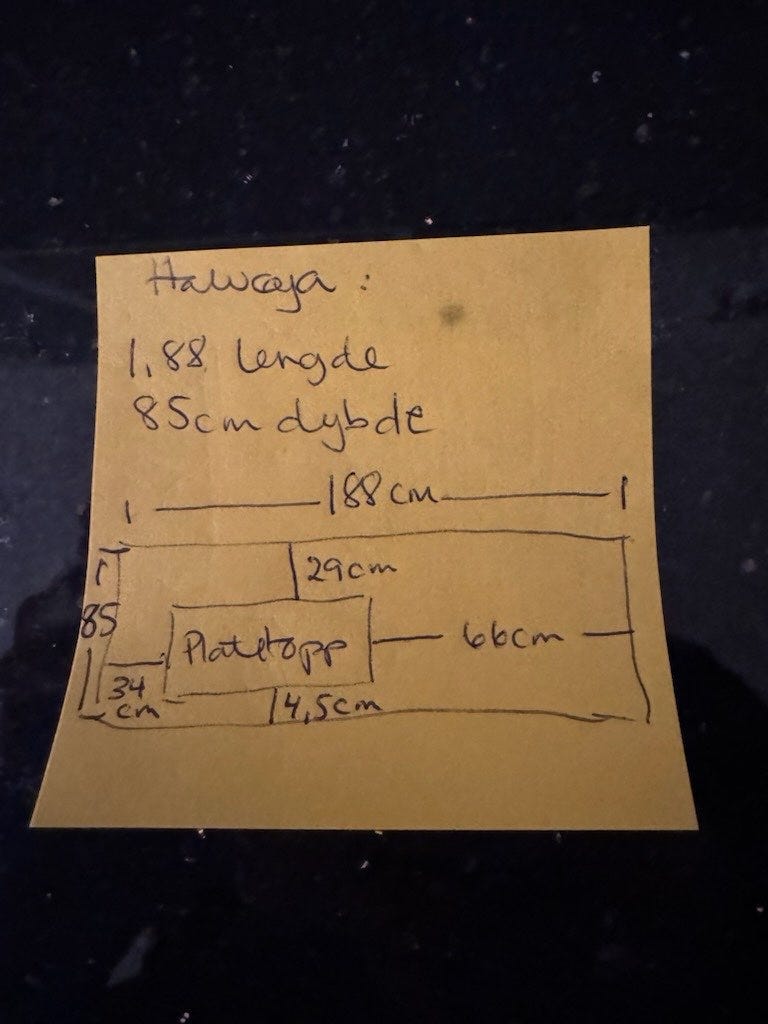 Halvøya:
1,88 lengde
85cm dybde
188cm
29cm
85
Platetopp
66cm
34
cm
4,5cm